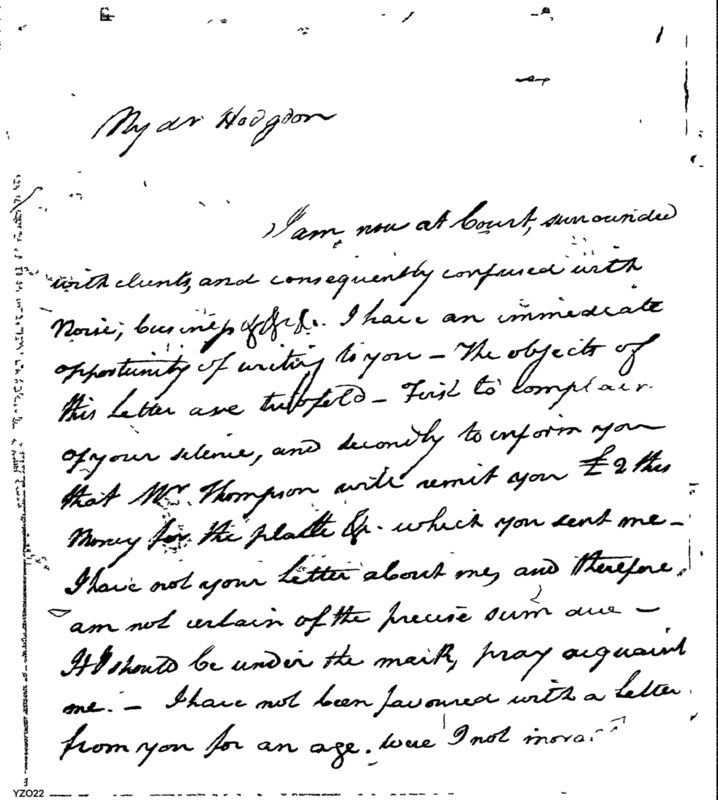 My dr Hodgdon
I am now at Court, surrounded
with clients, and consequently confused with
Noise, business &c &c &c. I have an immediate
opportunity of writing to you – The objects of
this Letter are twofold – First to complain
of your silence, and secondly to inform you
that Mr. Thompson will remit you £2 this
Money for the plaitt &c. which you sent me –
I have not your Letter about me, and therefore
am not certain of the precise sum due –
If I should be under the mark, pray acquaint
me. – I have not been favoured with a Letter
from you for an age. Were I not
YZ022